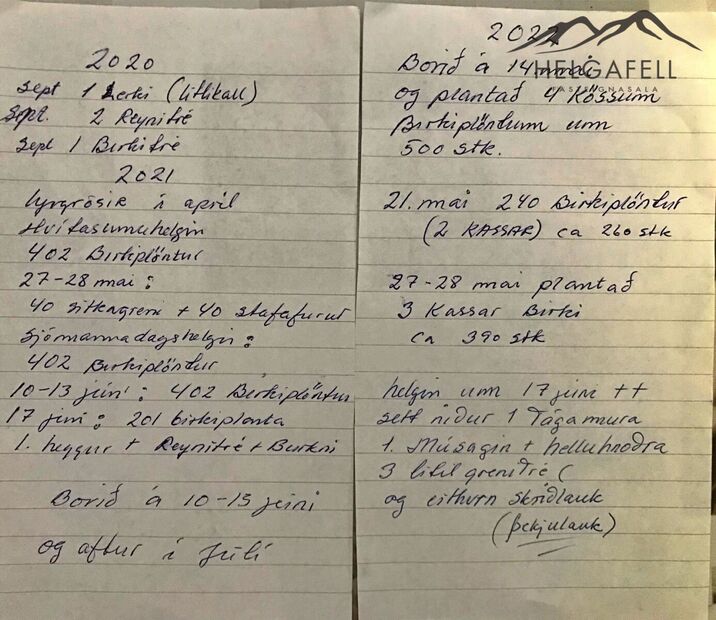 2020
Sept 1 Lerki (litlikall)
Sept. 2 Reynitré
Sept 1 Birkitré
2021
Lyngrósir í apríl
Hvítasunuhelgin
402 Birkiplöntur
27-28 mai :
40 sitkagreni + 40 stafafurur
Sjómannadagshelgin :
402 Birkiplöntur
10-13 júní : 402 Birkiplöntur
17 júní : 201 birkiplanta
1. heggur + Reynitré + Burkni
Borið á 10-15 júní
og aftur í Júlí
2022
HELGAFELL
FASTEIGNASALA
Borið á 14 mai
og plantað 4 Kössum
Birkiplöntum um
500 stk.
21. mai 240 Birkiplöntur
(2 KASSAR) ca 260 stk
27-28 mai plantað
3 Kassar Birki
ca 390 stk
helgin um 17 júní ++
sett niður 1 Tágamura
1. Músagin + helluhnoðra
3 litil grenitré (
og eithvrn skriðlauk
(þekjulauk)